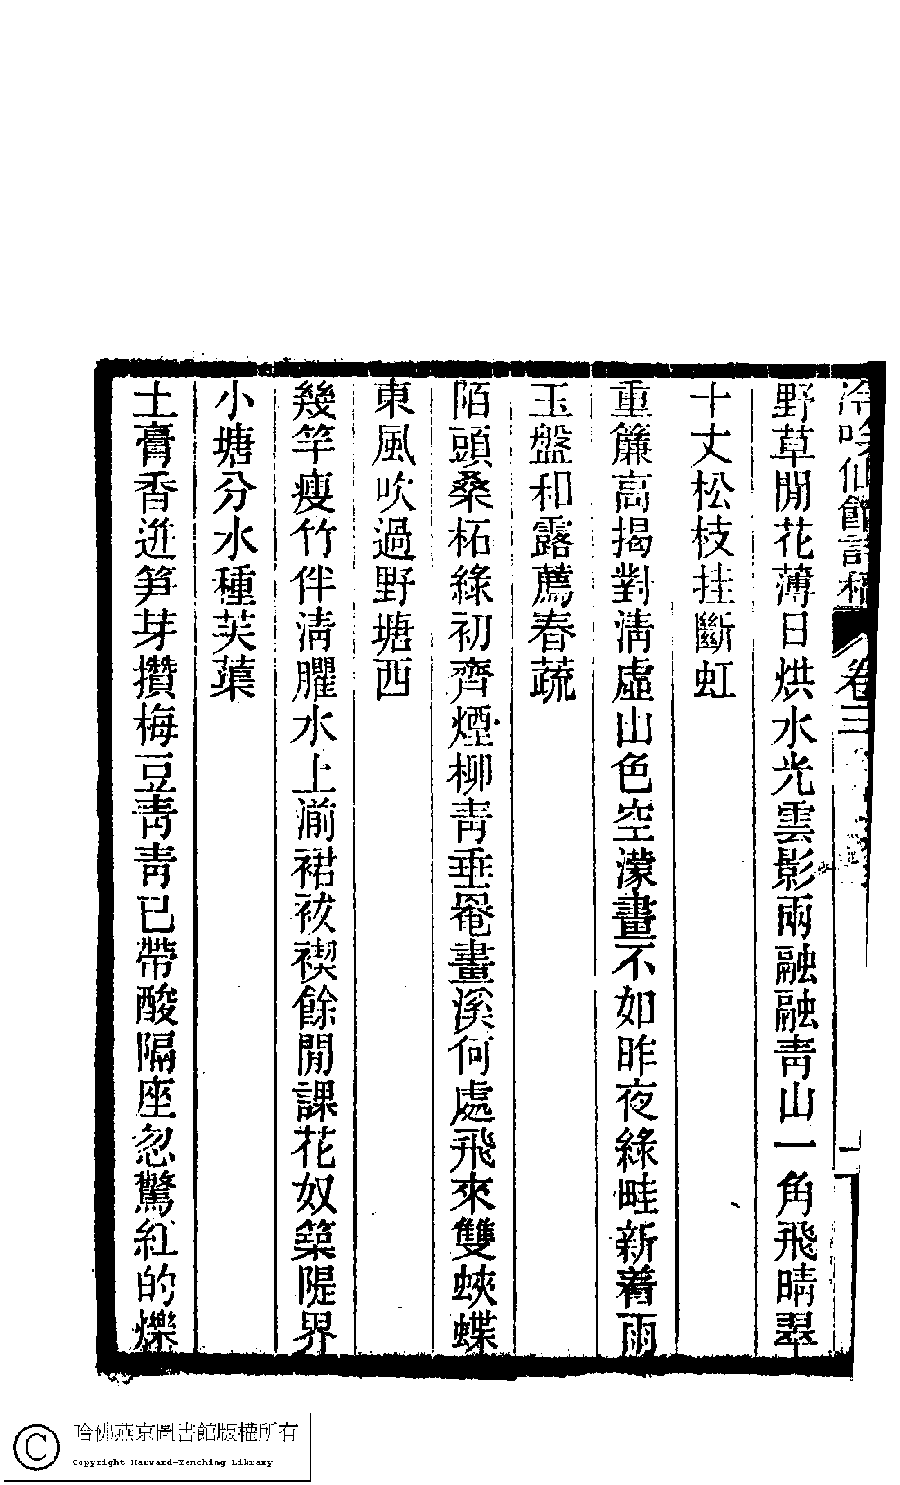 冷吟仙館詩稿 卷三
野草閒花薄日烘水光雲影兩融融青山一角飛晴翠
十丈松枝挂斷虹
重簾高揭對淸虛山色空濛畫不如昨夜綠畦新着雨
玉盤和露薦春蔬
陌頭桑柘綠初齊煙柳靑垂罨畫溪何處飛來雙蛺蝶
東風吹過野塘西
幾竿瘦竹伴淸臞水上湔裙祓禊餘閒課花奴築隄界
小塘分水種芙蕖
土膏香迸筍芽攢梅豆靑靑已帶酸隔座忽驚紅的爍
哈佛燕京圖書館版權所有
Copyright Harvard-Yenching Library